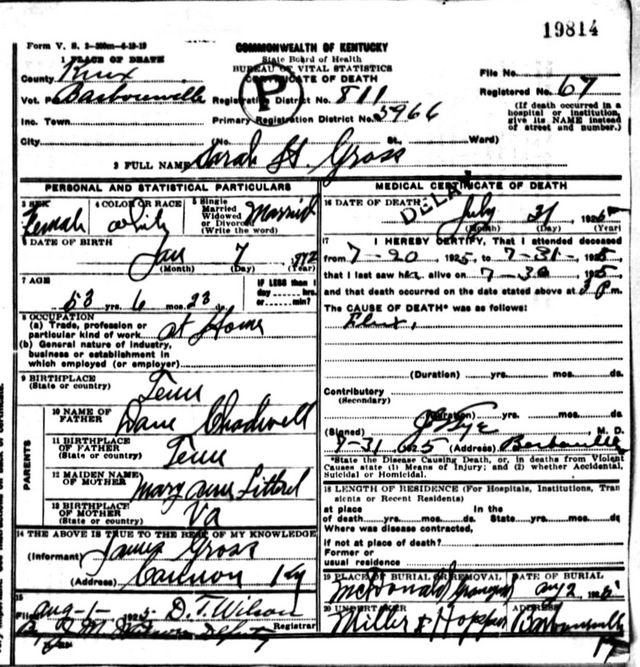 19814
Form V. S. 3-300m-6-19-19
COMMONWEALTH OF KENTUCKY
State Board of Health
BUREAU OF VITAL STATISTICS
CERTIFICATE OF DEATH
P
1 PLACE OF DEATH
County Knox
Vot. P Barbourville
Inc. Town
City
Registration District No. 811
Primary Registration District No. 5966
(No. St. Ward)
File No.
Registered No. 67
(If death occurred in a
hospital or institution,
give its NAME instead
of street and number.)
2 FULL NAME Sarah H. Gross
PERSONAL AND STATISTICAL PARTICULARS
3 SEX
Female
4 COLOR OR RACE
White
5 Single
Married
Widowed
or Divorced
(Write the word)
Married
6 DATE OF BIRTH
Jan 7 1872
(Month) (Day) (Year)
7 AGE
53 yrs. 6 mos. 23 ds.
IF LESS than 1
day hrs.
or min.
8 OCCUPATION
(a) Trade, profession or
particular kind of work at Home
(b) General nature of industry,
business or establishment in
which employed (or employer)
9 BIRTHPLACE
(State or country)
Tenn
PARENTS
10 NAME OF
FATHER
Dave Chadwell
11 BIRTHPLACE
OF FATHER
(State or country)
Tenn
12 MAIDEN NAME
OF MOTHER
Mary Ann Littrel
13 BIRTHPLACE
OF MOTHER
(State or country)
Va
14 THE ABOVE IS TRUE TO THE BEST OF MY KNOWLEDGE
(Informant) James Gross
(Address) Cannon Ky
15
Filed Aug-1- 1925 D. T. Wilson
Deputy Registrar
MEDICAL CERTIFICATE OF DEATH
DELAY
16 DATE OF DEATH
July 31, 1925
(Month) (Day) (Year)
17 I HEREBY CERTIFY, That I attended deceased
from 7-20 1925 to 7-31- 1925
that I last saw her alive on 7-30 1925
and that death occurred on the date stated above at 3 P.m.
The CAUSE OF DEATH* was as follows:
Flux,
(Duration) yrs. mos. ds.
Contributory
(Secondary)
(Duration) yrs. mos. ds.
(Signed) M. D.
7-31 1925 (Address) Barbourville
*State the Disease Causing Death, or, in deaths from Violent
Causes state (1) Means of Injury; and (2) whether Accidental,
Suicidal or Homicidal.
18 LENGTH OF RESIDENCE (For Hospitals, Institutions, Tran
sients or Recent Residents)
at place In the
of death yrs. mos. ds. State yrs. mos. ds
Where was disease contracted,
if not at place of death?
Former or
usual residence
19 PLACE OF BURIAL OR REMOVAL
McDonald Graveyard
DATE OF BURIAL
Aug 2, 1925
20 UNDERTAKER
Miller & Hopper
ADDRESS
Barbourville